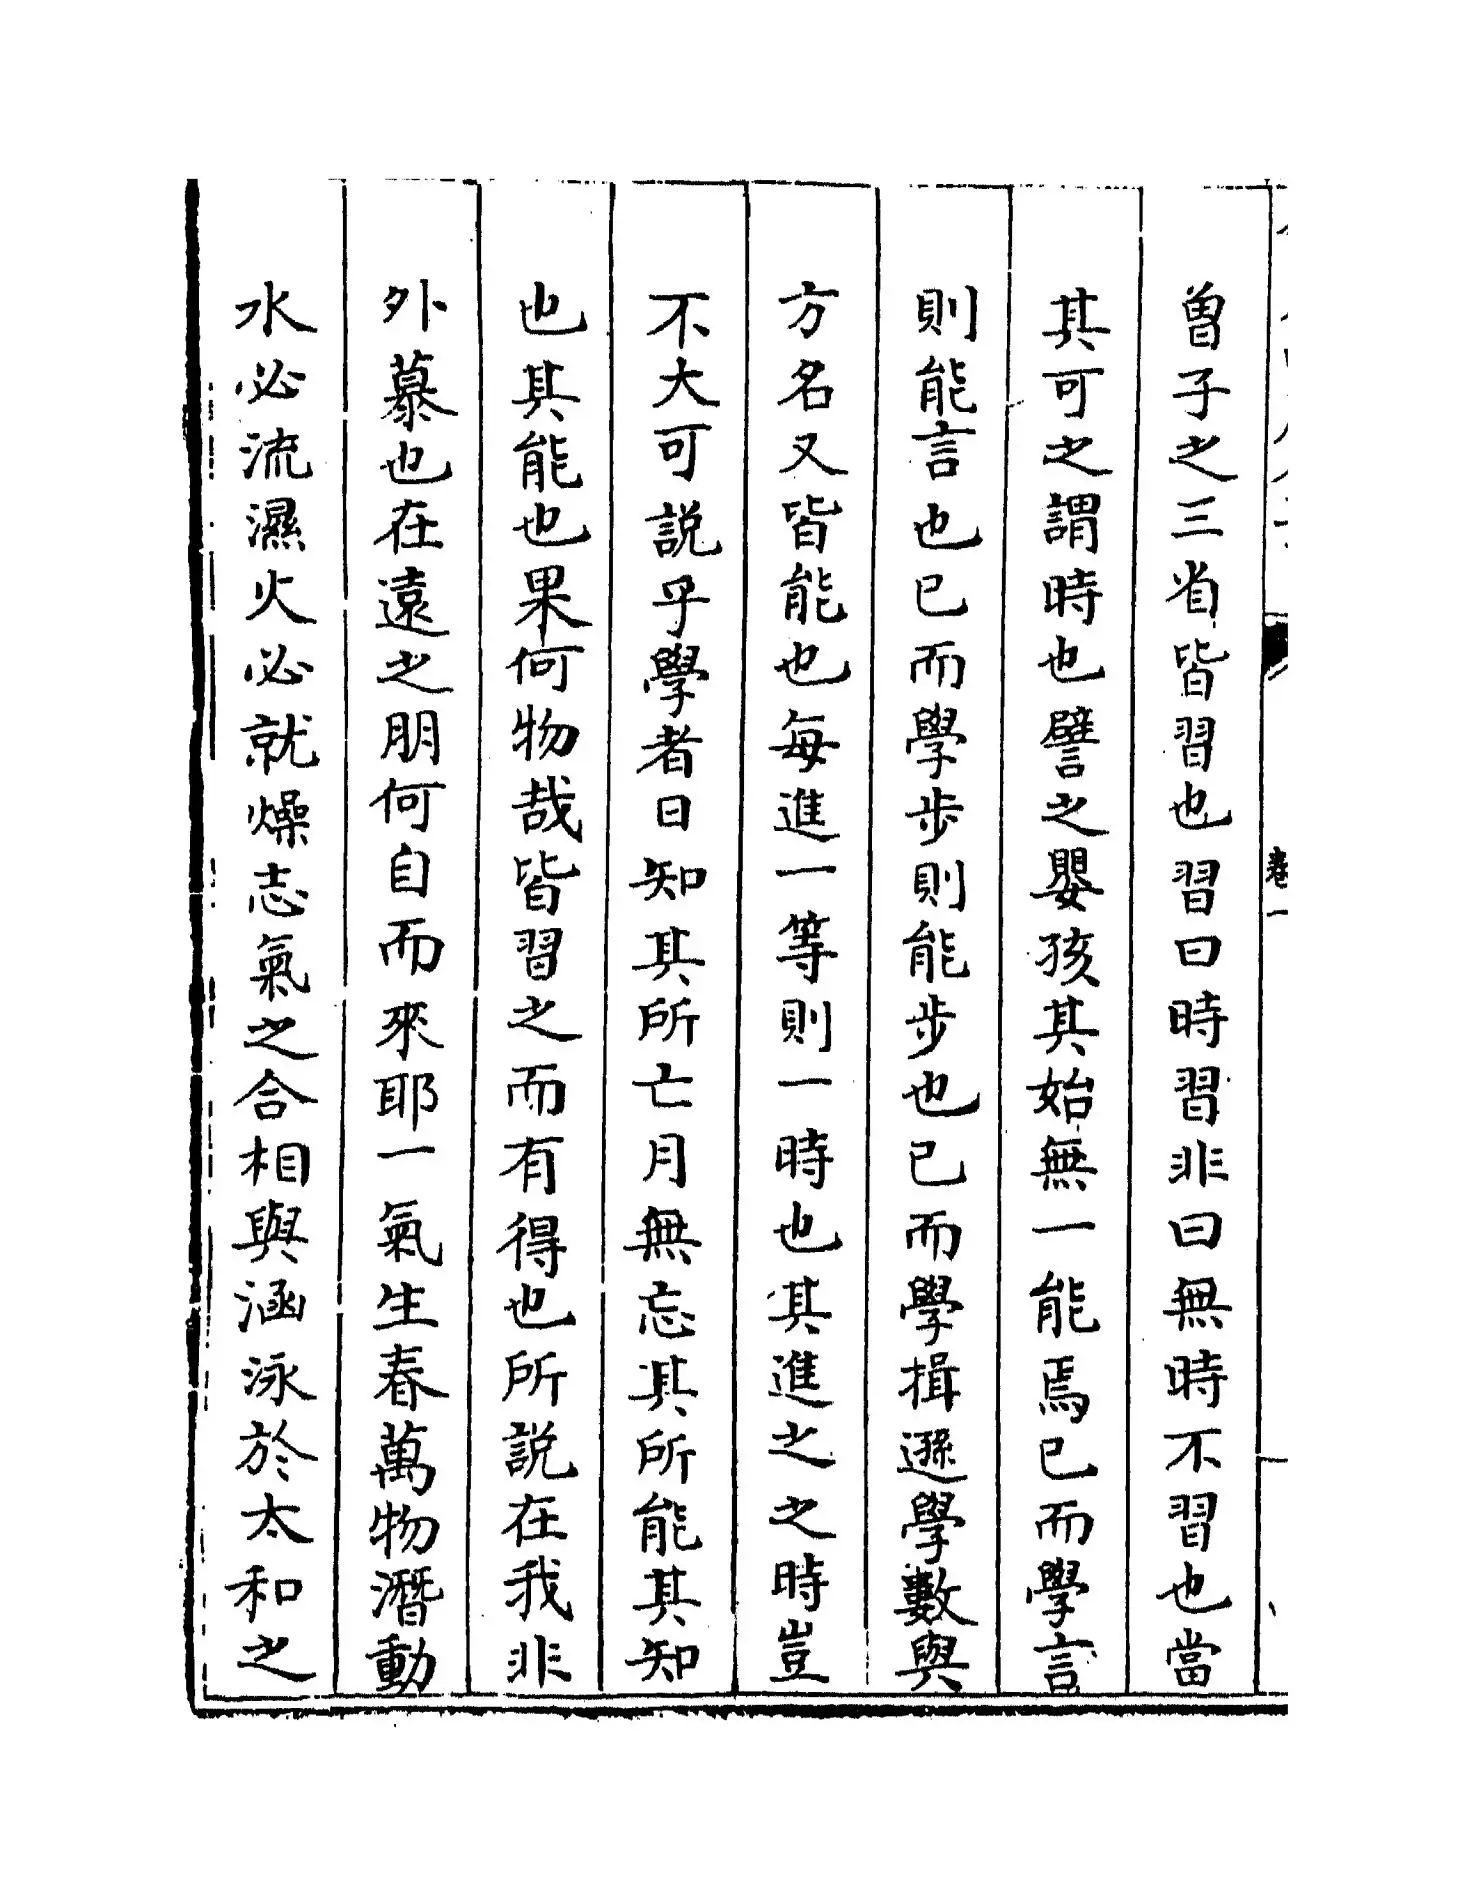 曽子之三省皆習也習曰時習非曰無時不習也當
其可之謂時也譬之嬰孩其始無一能焉已而學言
則能言也已而學步則能步也已而學揖遜學數與
方名又皆能也每進一等則一時也其進之之時豈
不大可説乎學者日知其所亡月無忘其所能其知
也其能也果何物哉皆習之而有得也所説在我非
外慕也在逺之朋何自而來耶一氣生春萬物潛動
水必流濕火必就燥志氣之合相與涵泳於太和之
卷一